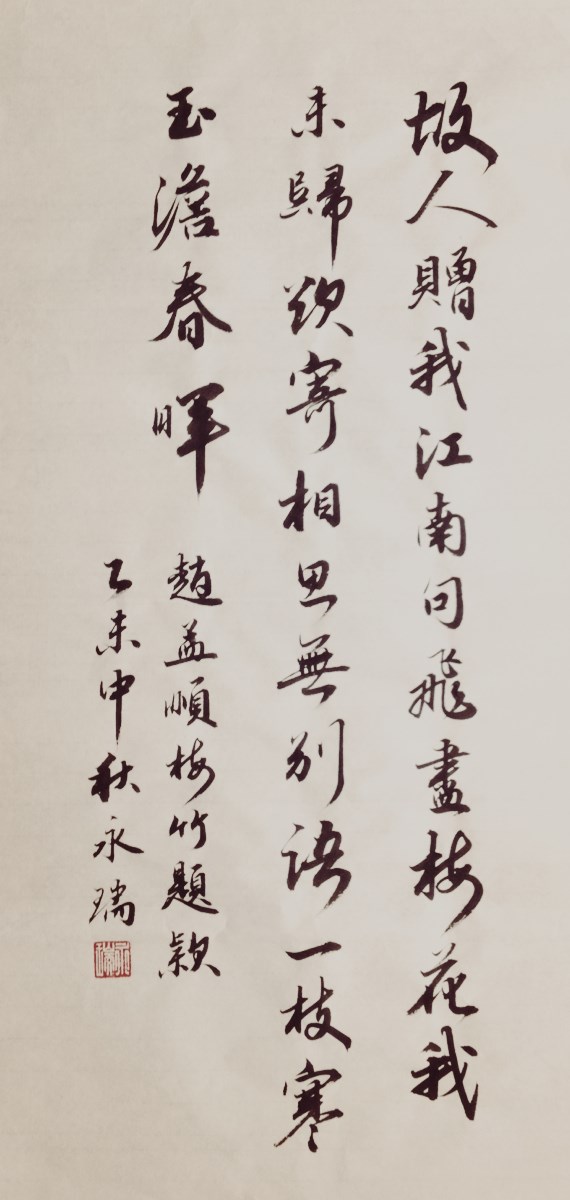 故人贈我江南句飛盡梅花我
未歸欲寄相思無別語一枝寒
玉澹春暉
趙孟頫梅竹題顈
乙未中秋永瑞